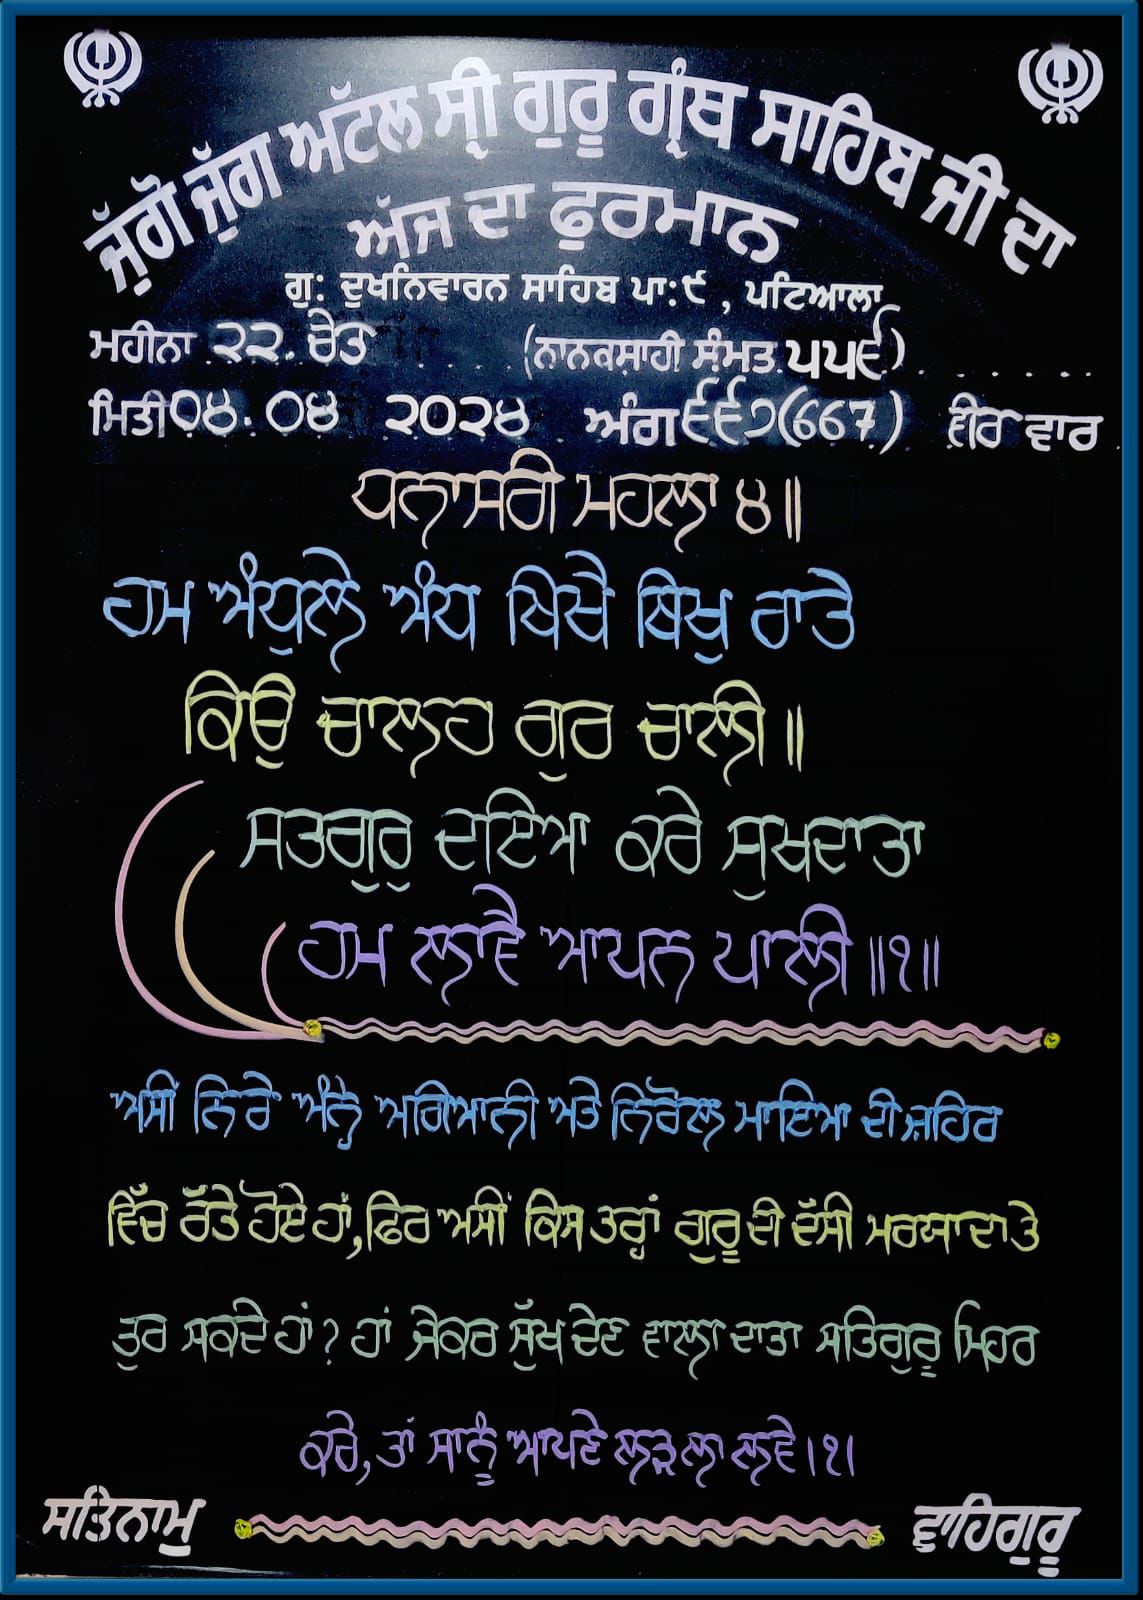 ਜੁੱਗੋ ਜੁੱਗ ਅਟੱਲ ਸ੍ਰੀ ਗੁਰੂ ਗ੍ਰੰਥ ਸਾਹਿਬ ਜੀ ਦਾ
ਅੱਜ ਦਾ ਫੁਰਮਾਨ
ਗੁ: ਦੁਖਨਿਵਾਰਨ ਸਾਹਿਬ ਪਾ:੯ , ਪਟਿਆਲਾ
ਮਹੀਨਾ ੨੨. ਚੇਤ (ਨਾਨਕਸ਼ਾਹੀ ਸੰਮਤ ੫੫੬)
ਮਿਤੀ ੦੪. ੦੪ ੨੦੨੪ ਅੰਗ ੬੬੭(667) ਵੀਰ ਵਾਰ
ਧਨਾਸਰੀ ਮਹਲਾ ੪॥
ਹਮ ਅੰਧੁਲੇ ਅੰਧ ਬਿਖੈ ਬਿਖੁ ਰਾਤੇ
ਕਿਉ ਚਾਲਹ ਗੁਰ ਚਾਲੀ॥
ਸਤਗੁਰੁ ਦਇਆ ਕਰੇ ਸੁਖਦਾਤਾ
ਹਮ ਲਾਵੈ ਆਪਨ ਪਾਲੀ॥੧॥
ਅਸੀਂ ਨਿਰੇ ਅੰਨ੍ਹੇ ਅਗਿਆਨੀ ਅਤੇ ਨਿਰੋਲ ਮਾਇਆ ਦੀ ਜ਼ਹਿਰ
ਵਿੱਚ ਰੱਤੇ ਹੋਏ ਹਾਂ, ਫਿਰ ਅਸੀਂ ਕਿਸ ਤਰ੍ਹਾਂ ਗੁਰੂ ਦੀ ਦੱਸੀ ਮਰਯਾਦਾ ਤੇ
ਤੁਰ ਸਕਦੇ ਹਾਂ? ਹਾਂ ਜੇਕਰ ਸੁੱਖ ਦੇਣ ਵਾਲਾ ਦਾਤਾ ਸਤਿਗੁਰੂ ਮਿਹਰ
ਕਰੇ, ਤਾਂ ਸਾਨੂੰ ਆਪਣੇ ਲੜ ਲਾ ਲਵੇ।੧।
ਸਤਿਨਾਮੁ ਵਾਹਿਗੁਰੂ